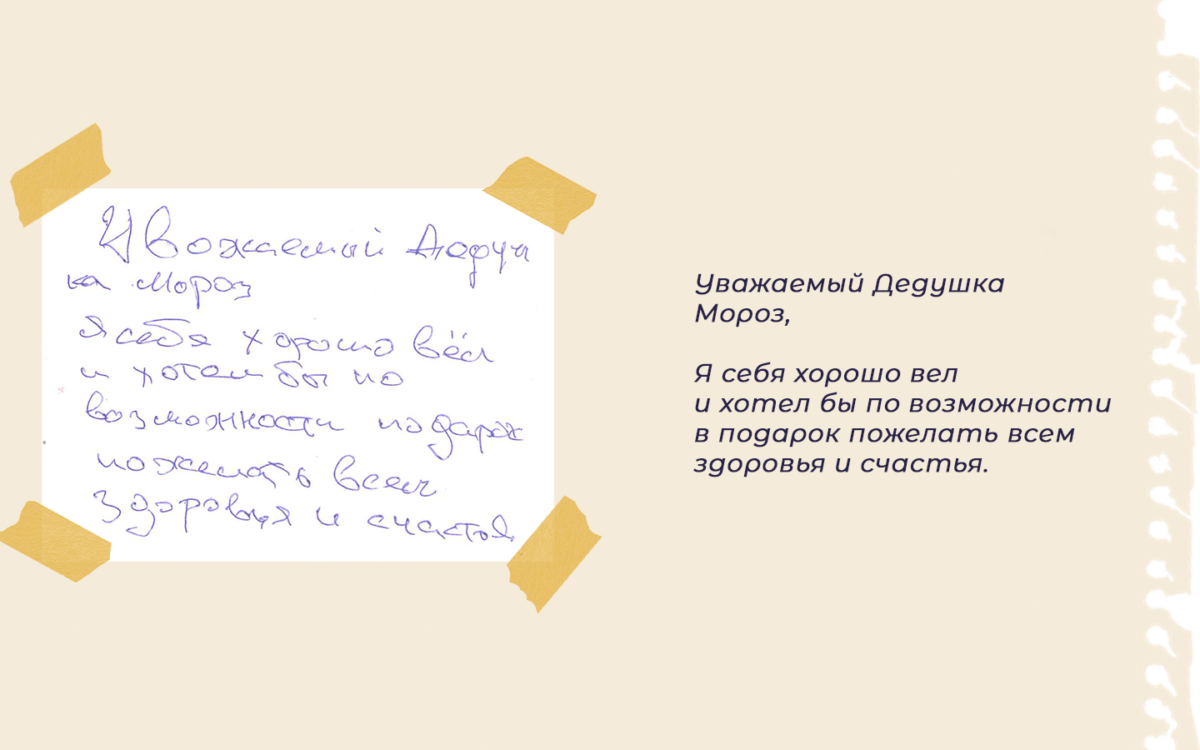 Уважаемый Дедуш
ка Мороз
Я себя хорошо вёл
и хотел бы по
возможности подарок
пожелать всем
здоровья и счастья
Уважаемый Дедушка
Мороз,
Я себя хорошо вел
и хотел бы по возможности
в подарок пожелать всем
здоровья и счастья.